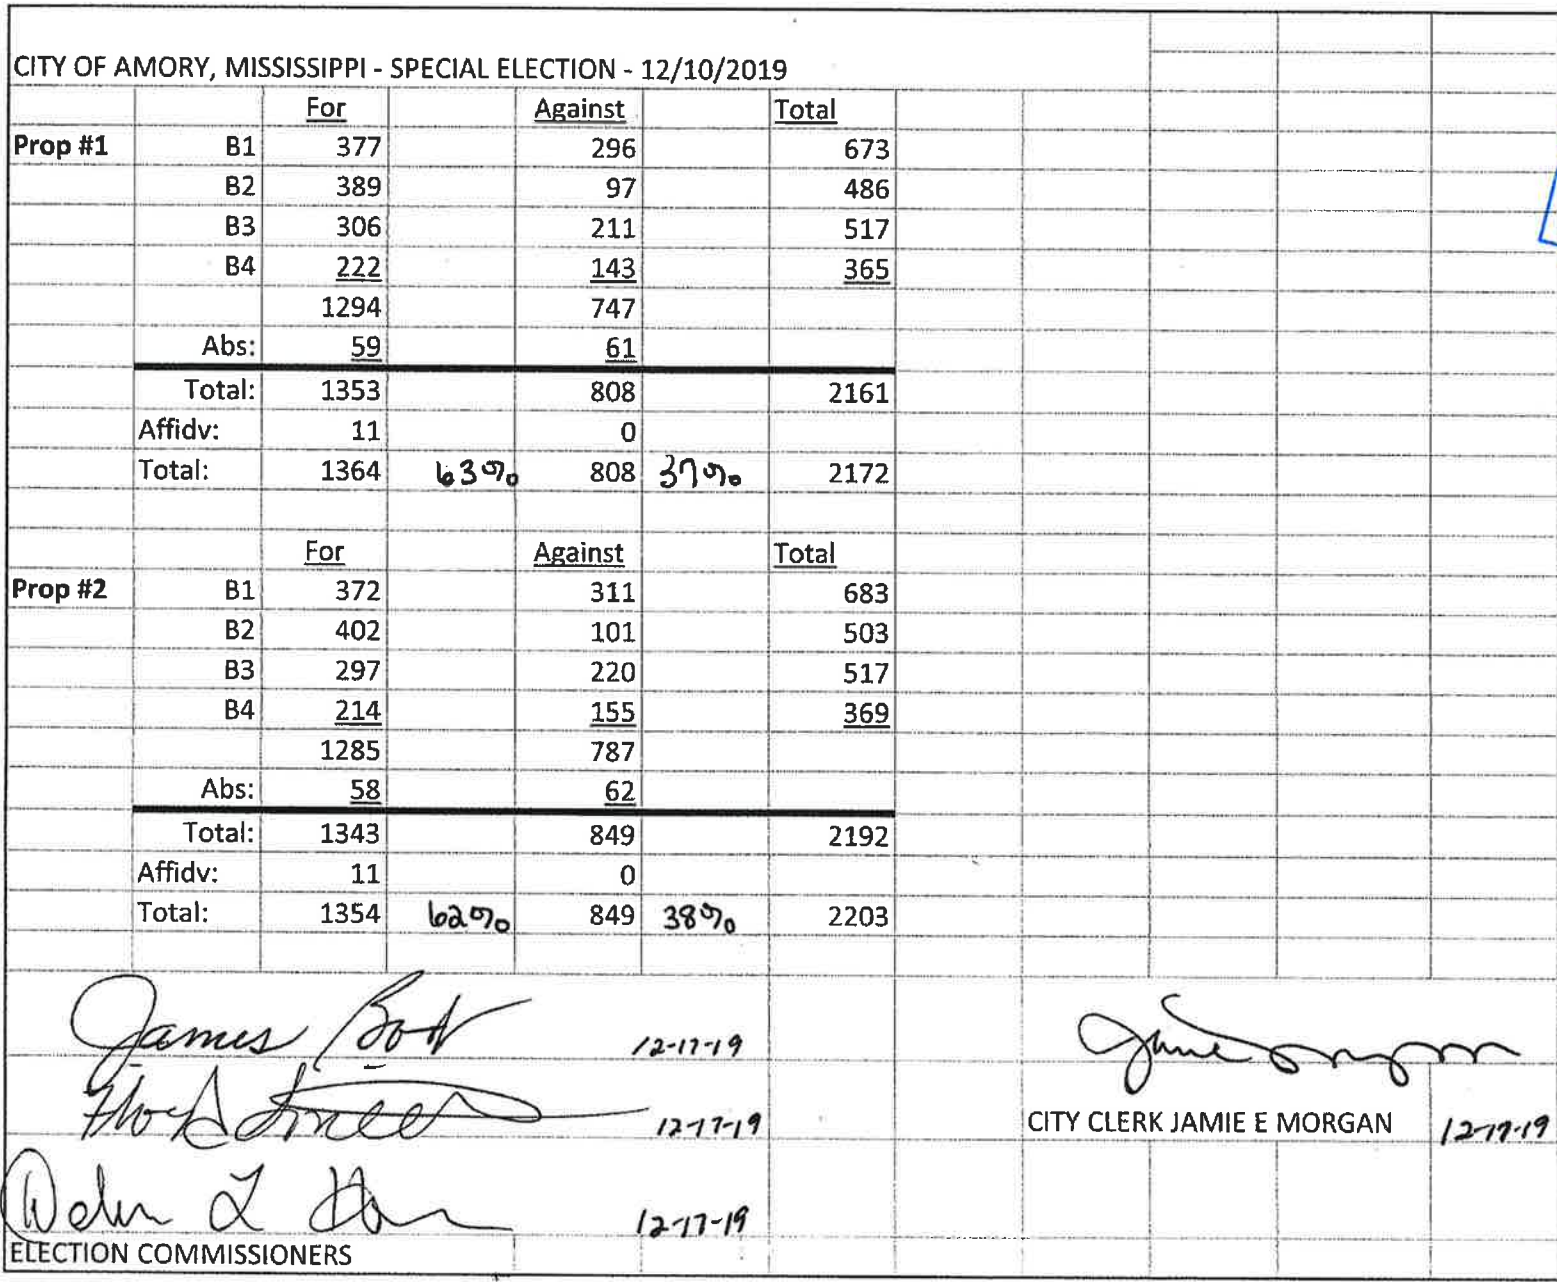 CITY OF AMORY, MISSISSIPPI - SPECIAL ELECTION - 12/10/2019
For Against Total
Prop #1 B1 377 296 673
B2 389 97 486
B3 306 211 517
B4 222 143 365
1294 747
Abs: 59 61
Total: 1353 808 2161
Affidv: 11 0
Total: 1364 63% 808 37% 2172
For Against Total
Prop #2 B1 372 311 683
B2 402 101 503
B3 297 220 517
B4 214 155 369
1285 787
Abs: 58 62
Total: 1343 849 2192
Affidv: 11 0
Total: 1354 62% 849 38% 2203
James 12-17-19
12-17-19
CITY CLERK JAMIE E MORGAN 12-17-19
L 12-17-19
ELECTION COMMISSIONERS